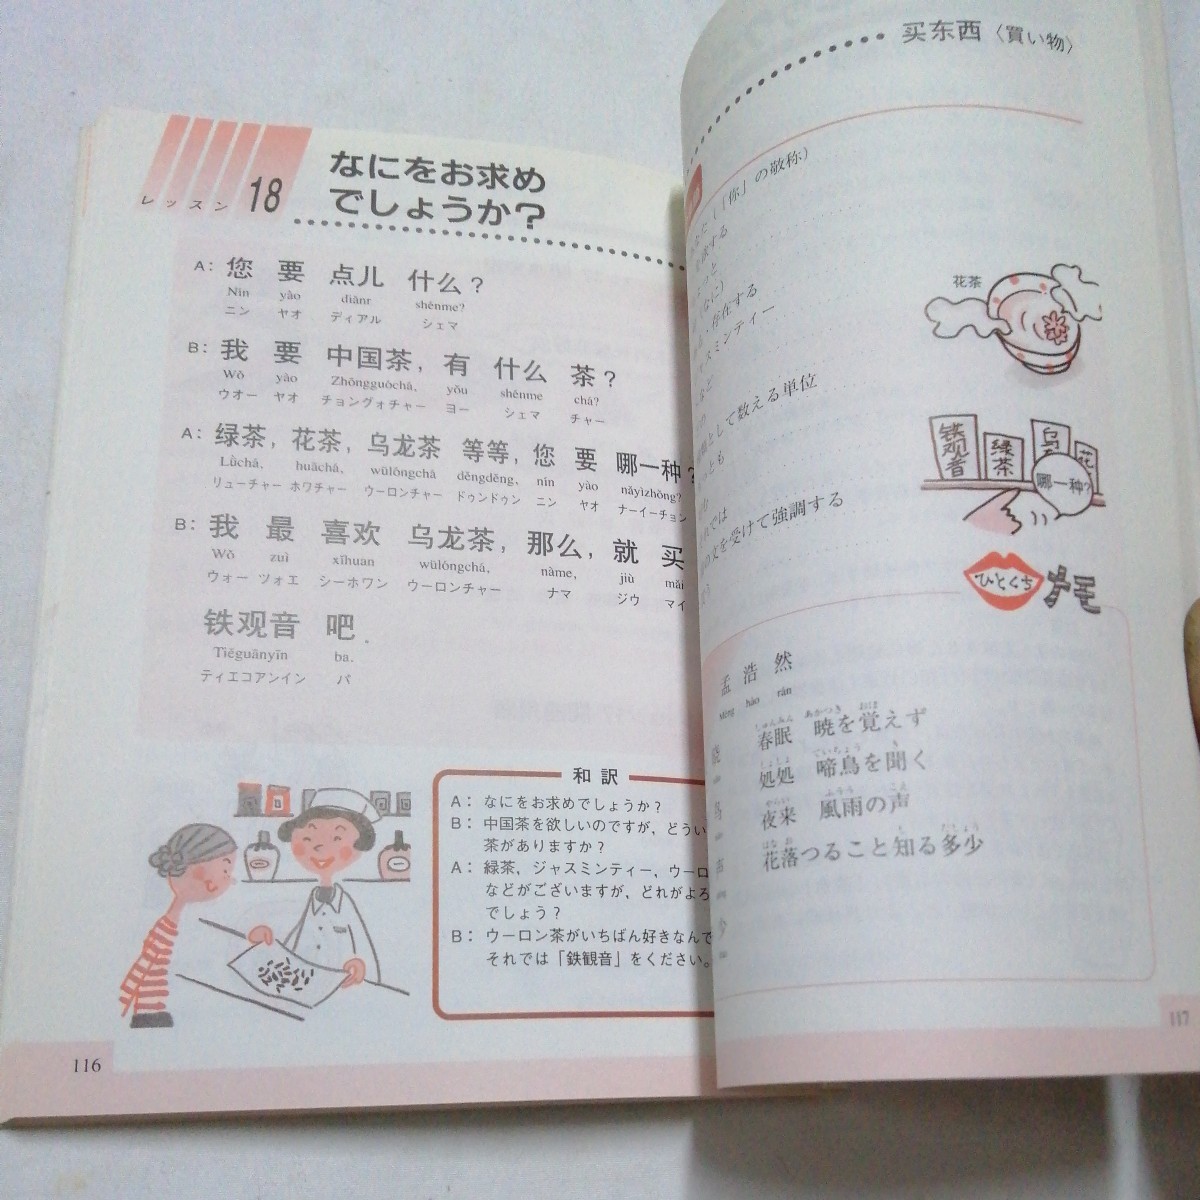 レッスン 18
なにをお求め
でしょうか?
A: 您 要 点儿 什么?
Nín yào diǎnr shénme?
ニン ヤオ ディアル シェマ
B: 我 要 中国茶, 有 什么 茶?
Wǒ yào Zhōngguóchá, yǒu shénme chá?
ウオー ヤオ チョングォチャー ヨー シェマ チャー
A: 绿茶, 花茶, 乌龙茶 等等, 您 要 哪一种?
Lǜchá, huāchá, wūlóngchá děngděng, nín yào nǎyìzhǒng?
リューチャー ホワチャー ウーロンチャー ドゥンドゥン ニン ヤオ ナーイーチョン
B: 我 最 喜欢 乌龙茶, 那么, 就 买
Wǒ zuì xǐhuan wūlóngchá, nàme, jiù mǎi
ウォー ツォエ シーホワン ウーロンチャー ナマ ジウ マイ
铁观音 吧.
Tiěguānyīn ba.
ティエコアンイン バ
和訳
A: なにをお求めでしょうか?
B: 中国茶を欲しいのですが, どうい
茶がありますか?
A: 緑茶、ジャスミンティー、ウーロ
などがございますが、どれがよろ
でしょう?
B: ウーロン茶がいちばん好きなんで
それでは「鉄観音」をください。
116
买东西〈買い物〉
(「你」の敬称)
存在する
スミンティー
として数える単位
の文を受けて強調する
花茶
铁观音
绿茶
哪一种?
ひとくち メモ
孟 浩 然
Mèng hào rán
春眠 暁を覚えず
しゅんみん あかつき おぼ
処処 啼鳥を聞く
しょしょ ていちょう き
夜来 風雨の声
やらい ふうう こえ
花落つること知る多少
はな お し たしょう
117